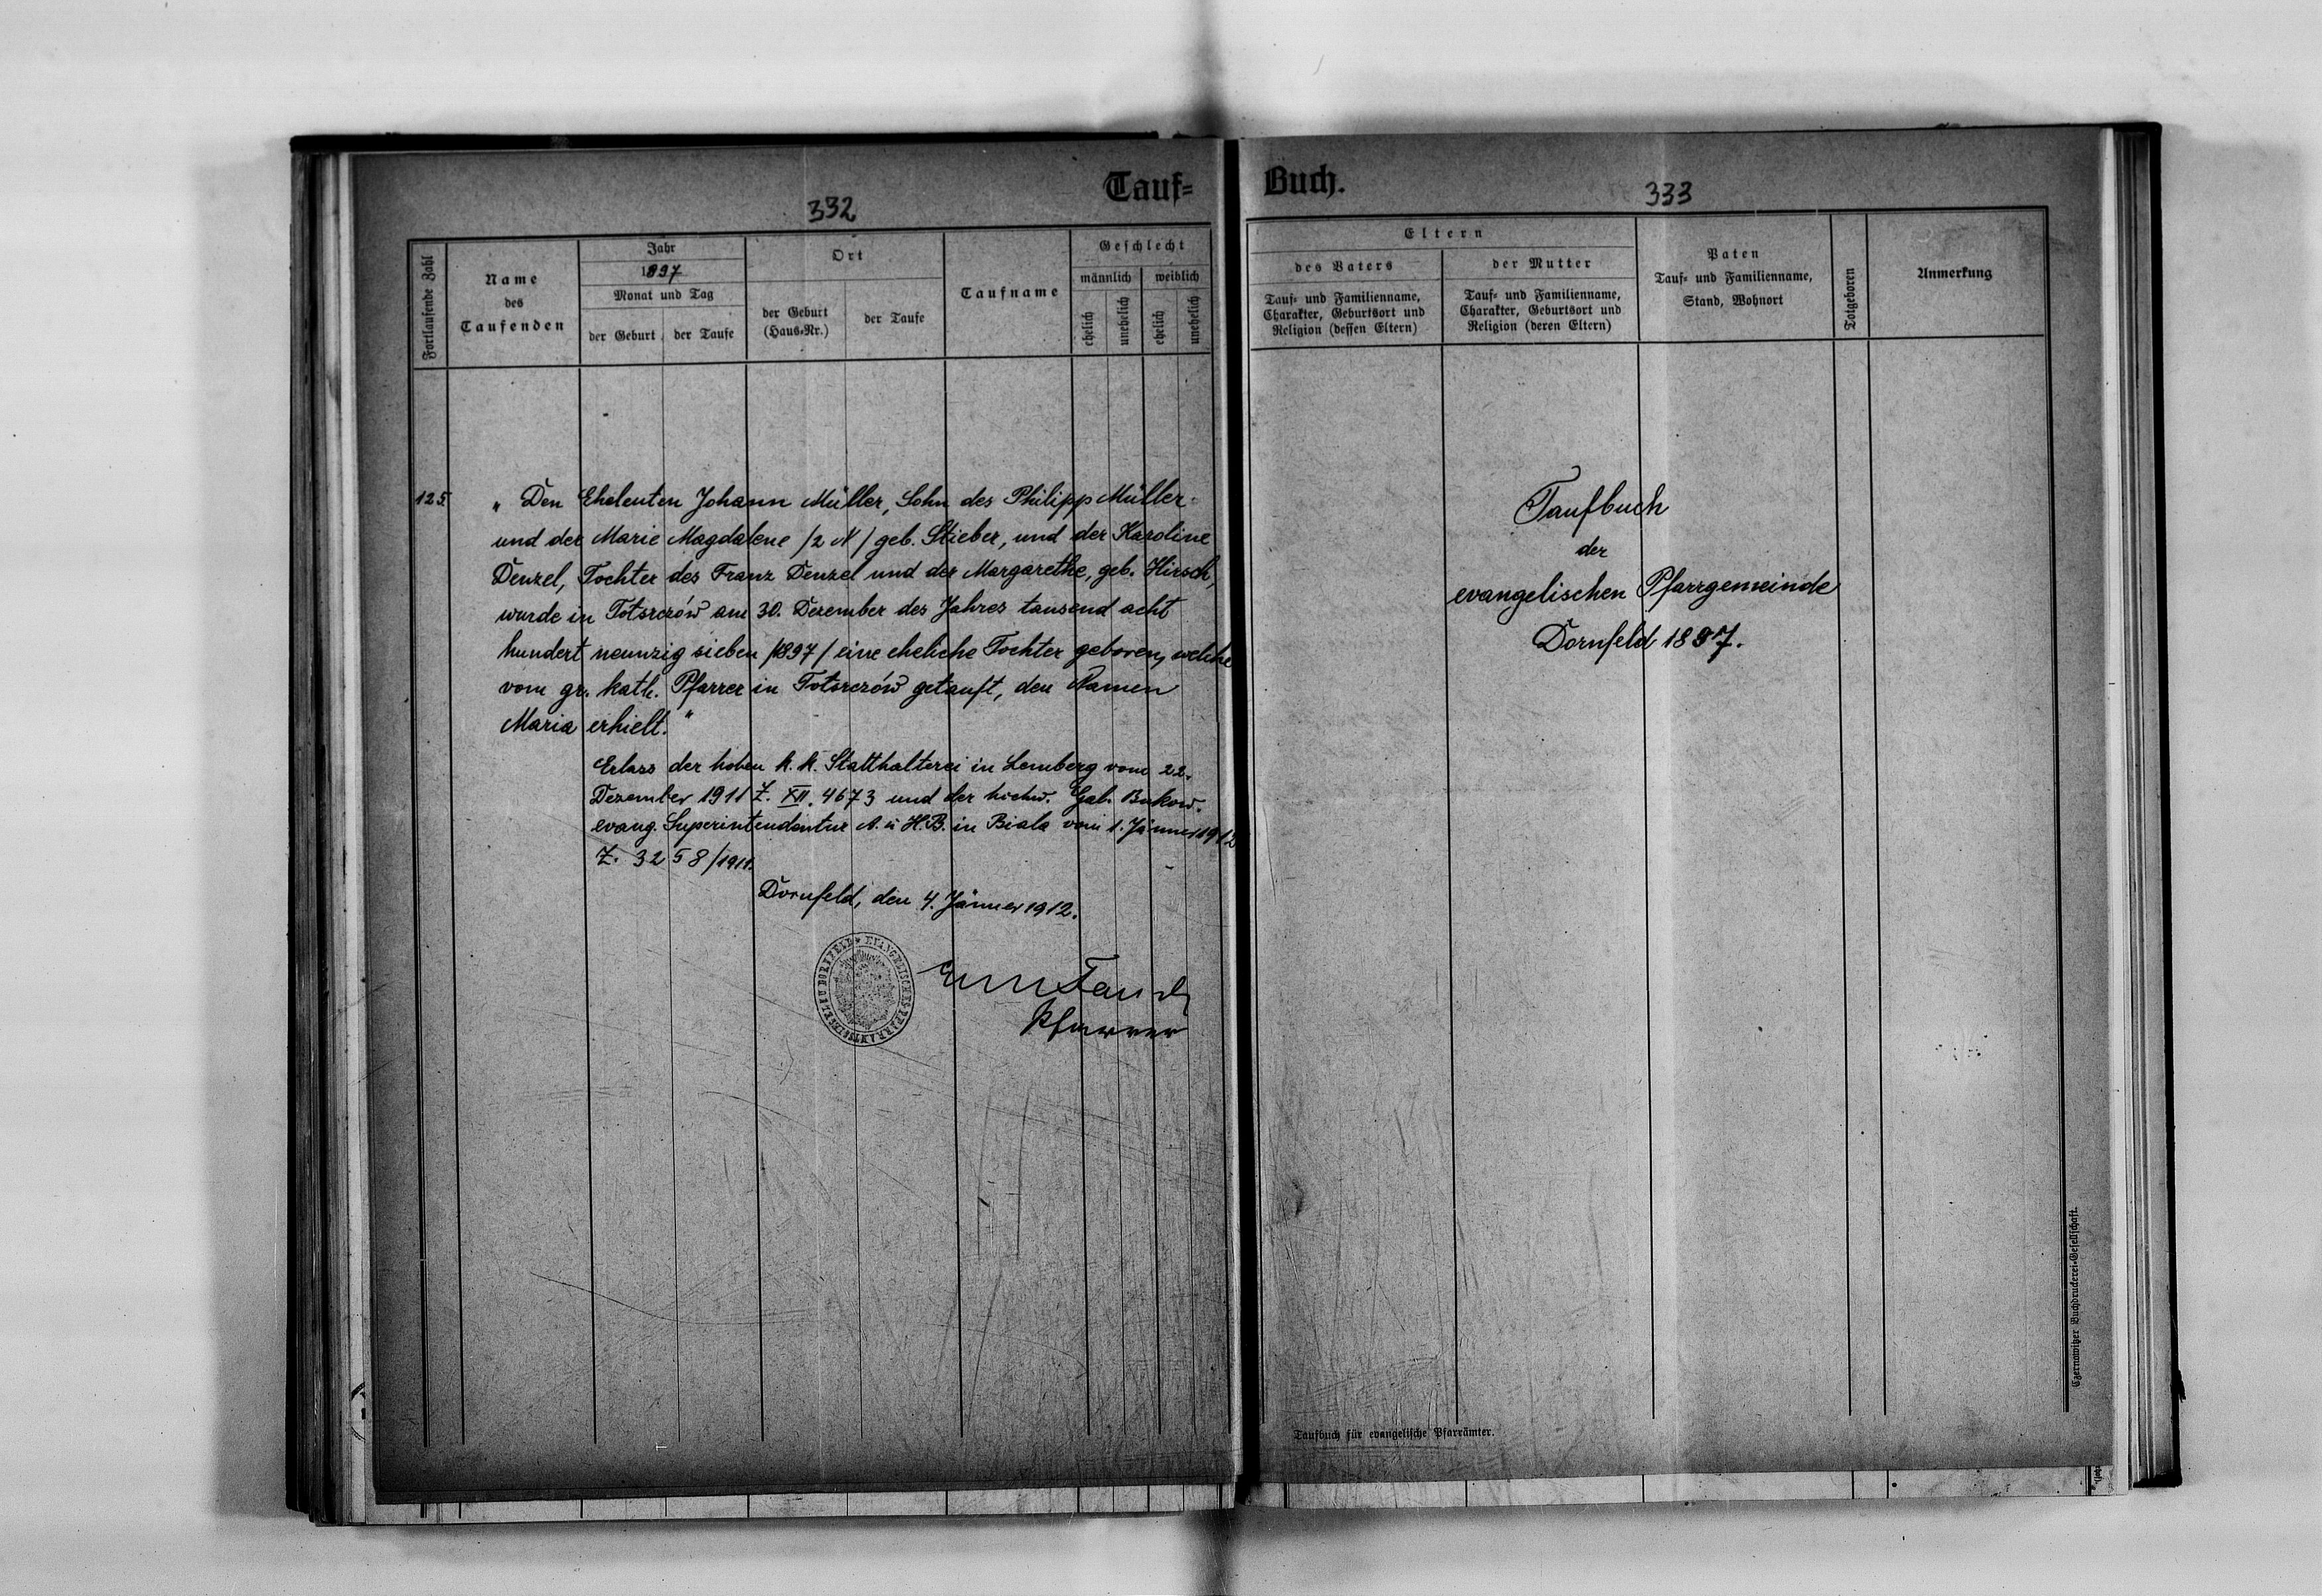 Tauf=
332
Fortlaufende Zahl
Name
des
Taufenden
Jahr
1897
Monat und Tag
der Geburt
der Taufe
Ort
der Geburt
(Haus=Nr.)
der Taufe
Taufname
Geschlecht
männlich
weiblich
ehelich
unehelich
ehelich
unehelich
125
„ Den Eheleuten Johann Müller, Sohn des Philipp Müller
und der Marie Magdalene /2 N/ geb. Stieber, und der Karoline
Denzel, Tochter des Franz Denzel und der Margarethe, geb. Hirsch,
wurde in Totszczów am 30. Dezember des Jahres tausend acht
hundert neunzig sieben /1897/ eine eheliche Tochter geboren, welche
vom gr. kath. Pfarrer in Totszczów getauft, den Namen
Maria erhielt."
Erlass der hohen k. k. Statthalterei in Lemberg vom 22.
Dezember 1911 Z. XII. 4673 und der hochw. Gal. Bukow.
evang. Superintendentur A. u H.B. in Biala vom 1. Jänner 1912
Z. 3258/1911.
Dornfeld, den 4. Jänner 1912.
EVANGELISCHES PFARRAMT DORNFELD
Pfarrer
Buch.
333
Eltern
des Vaters
Tauf= und Familienname,
Charakter, Geburtsort und
Religion (dessen Eltern)
der Mutter
Tauf= und Familienname,
Charakter, Geburtsort und
Religion (deren Eltern)
Paten
Tauf= und Familienname,
Stand, Wohnort
Totgeboren
Anmerkung
Taufbuch
der
evangelischen Pfarrgemeinde
Dornfeld 1897.
Czernowitzer Buchdruckerei=Gesellschaft.
Taufbuch für evangelische Pfarrämter.